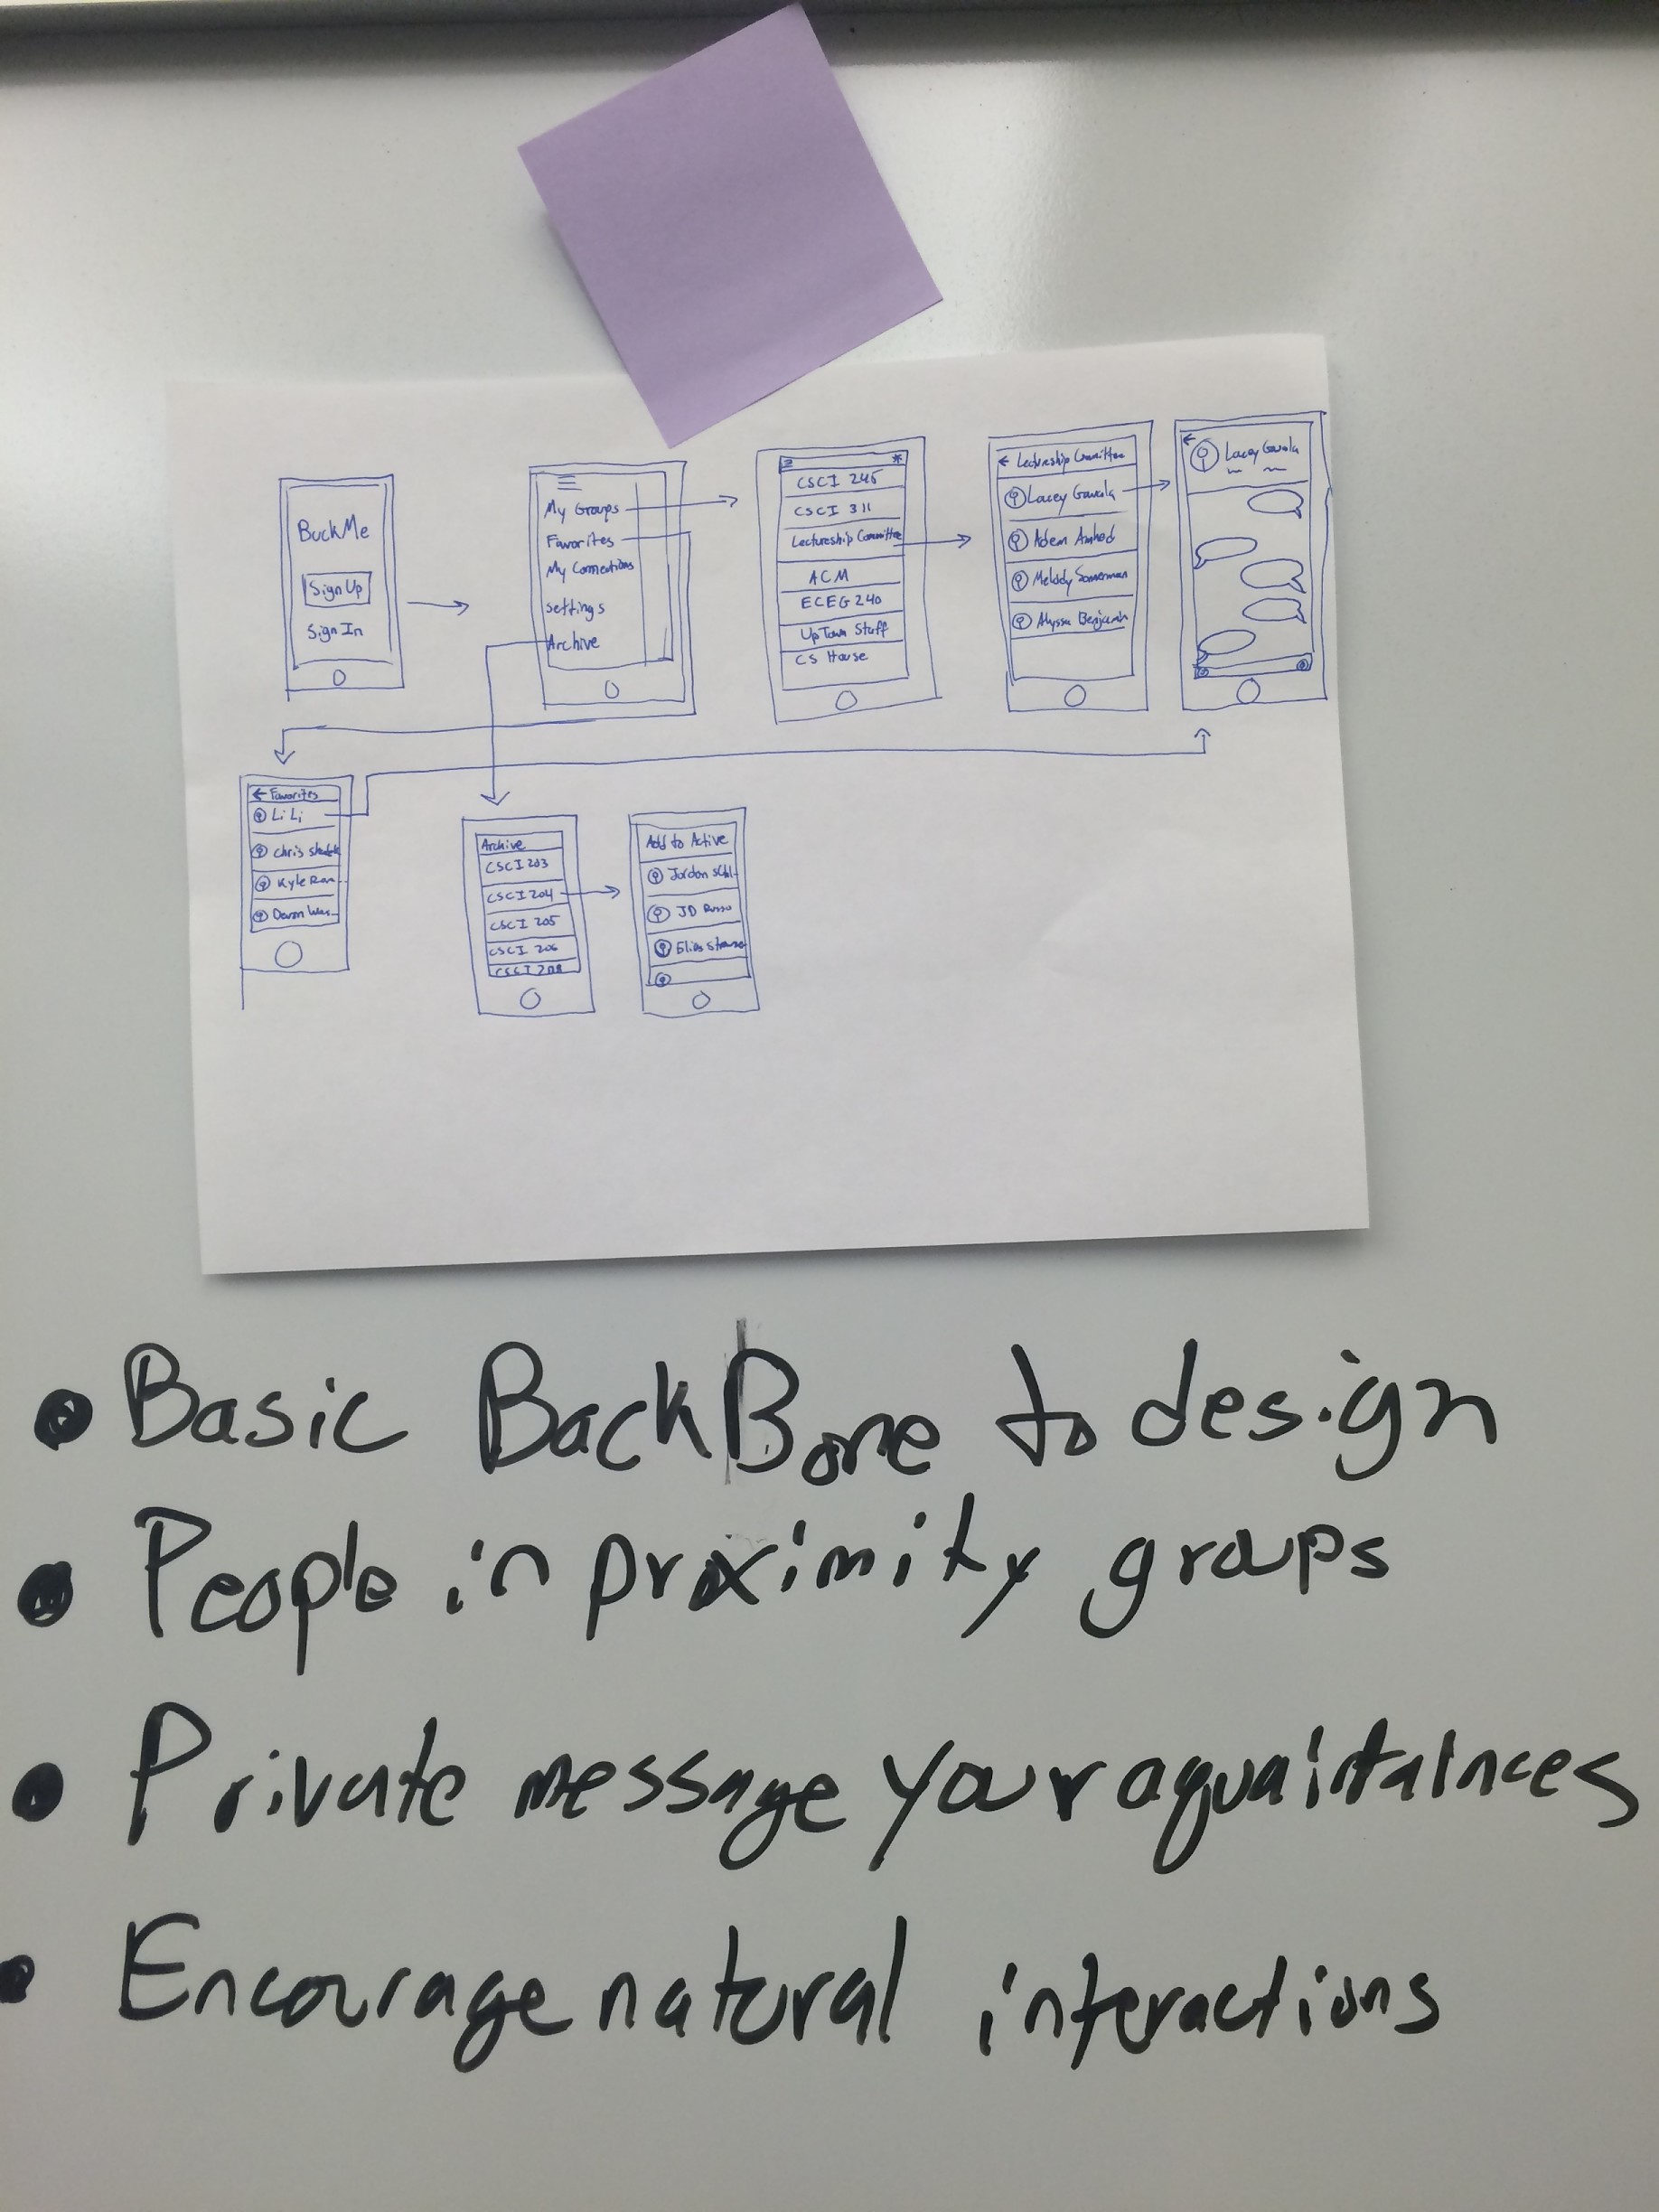 BuckMe
Sign Up
Sign In
My Groups
Favorites
My Connections
Settings
Archive
CSCI 245
CSCI 311
Lectureship Committee
ACM
ECEG 240
UpTown Staff
CS House
← Lectureship Committee
Lacey
Adem
Melody
Alyssa Benjamin
←
Lacey
← Favorites
Li Li
Chris
Kyle
Archive
CSCI 203
CSCI 204
CSCI 205
CSCI 206
CSCI 208
Add to Active
Jordan
JD Russo
Elias
• Basic BackBone to design
• People in proximity groups
• Private message your aquaintainces
• Encourage natural interactions